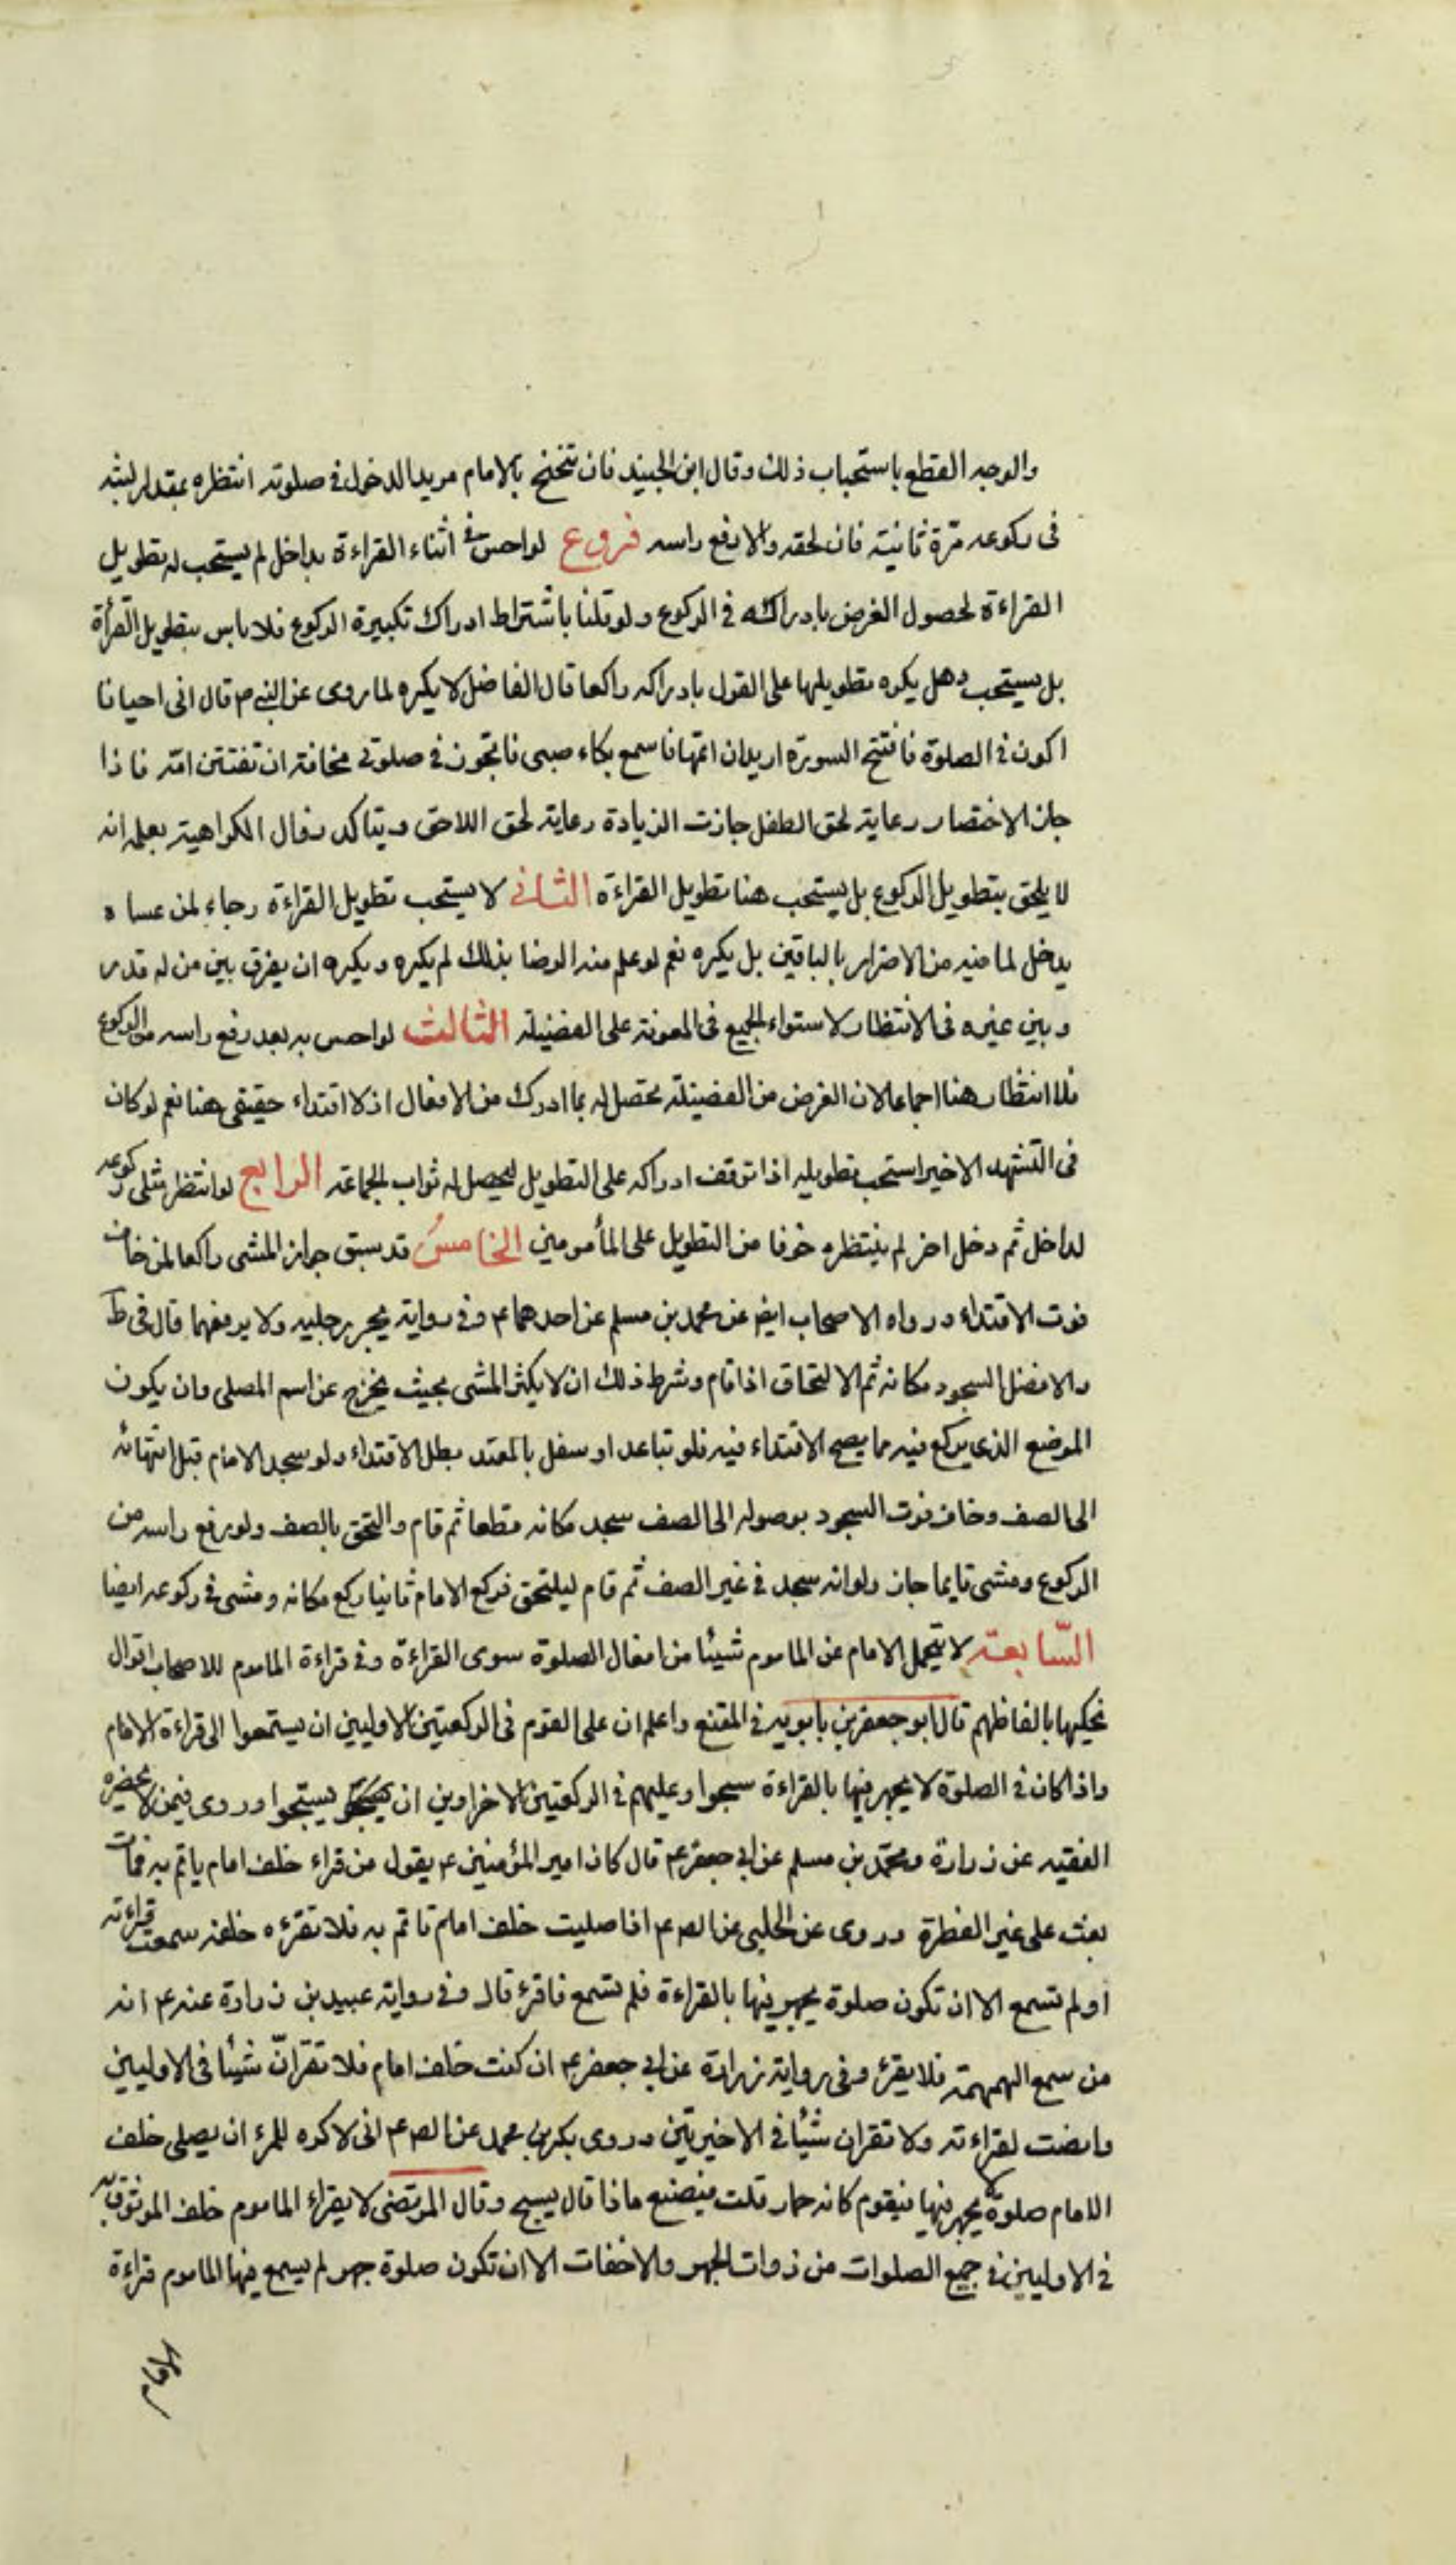 والوجه القطع باستحباب ذلك وقال ابن الجنيد فان تنحنح بالامام مريدا لدخول في صلوته انتظره بمقدار لبثه
فى ركوعه مرة ثانية فان لحقه والا رفع راسه فروع لو احس في اثناء القراءة بداخل لم يستحب له تطويل
القراءة لحصول الغرض بادراكه في الركوع ولو قلنا باشتراط ادراك تكبيرة الركوع فلا باس بتطويل القرأة
بل يستحب وهل يكره تطويلها على القول بادراكه راكعا قال الفاضل لا يكره لما روى عن النبي ص قال انى احيانا
اكون في الصلوة فافتتح السورة اريد ان اتمها فاسمع بكاء صبى فاتجوز في صلوتى مخافة ان تفتتن امه فاذا
جاز الاختصار رعاية لحق الطفل جازت الزيادة رعاية لحق اللاحق ويتاكد زوال الكراهية بعلمه انه
لا يلحق بتطويل الركوع بل يستحب هنا تطويل القراءة الثانى لا يستحب تطويل القراءة رجاء لمن عساه
يدخل لما فيه من الاضرار بالباقين بل يكره نعم لو علم منه الرضا بذلك لم يكره ويكره ان يفرق بين من له قدر
وبين غيره فى الانتظار لاستواء الجميع فى المعونة على الفضيلة الثالث لو احس به بعد رفع راسه من الركوع
فلا انتظار هنا اجماعا لان الغرض من الفضيلة تحصل له بما ادرك من الافعال اذ لا اقتداء حقيقى هنا نعم لو كان
فى التشهد الاخير استحب تطويله اذا توقف ادراكه على التطويل ليحصل له ثواب الجماعة الرابع لو انتظر مثلى ركوعه
لداخل ثم دخل اخر لم ينتظره خوفا من التطويل على المأمومين الخامس قد سبق جواز المشى راكعا لمن خاف
فوت الاقتداء ورواه الاصحاب ايض عن محمد بن مسلم عن احدهما ع وفى رواية يجر رجليه ولا يرفعهما قال فى ط
والافضل السجود مكانه ثم الالتحاق اذا قام وشرط ذلك ان لا يكثر المشى بحيث يخرج عن اسم المصلى وان يكون
الموضع الذى يركع فيه مما يصح الاقتداء فيه فلو تباعد او سفل بالمعتد بطل الاقتداء ولو سجد الامام قبل انتهائه
الى الصف وخاف فوت السجود بوصوله الى الصف سجد مكانه قطعا ثم قام والتحق بالصف ولو رفع راسه من
الركوع ومشى قايما جاز ولو انه سجد في غير الصف ثم قام ليلتحق فركع الامام ثانيا ركع مكانه ومشى في ركوعه ايضا
السابعة لا يتحمل الامام عن الماموم شيئا من افعال الصلوة سوى القراءة وفى قراءة الماموم للاصحاب اقوال
نحكيها بالفاظهم قال ابو جعفر بن بابويه في المقنع واعلم ان على القوم فى الركعتين الاوليين ان يستمعوا الى قراءة الامام
واذا كان في الصلوة لا يجهر فيها بالقراءة سبحوا وعليهم في الركعتين الاخراوين ان يسبحوا وروى فيمن لا يحضره
الفقيه عن زرارة ومحمد بن مسلم عن ابي جعفر ع قال كان امير المؤمنين ع يقول من قراء خلف امام ياتم به فمات
بعث على غير الفطرة وروى عن الحلبى عن الص ع اذا صليت خلف امام تاتم به فلا تقرء خلفه سمعت قراءته
او لم تسمع الا ان تكون صلوة يجهر فيها بالقراءة فلم تسمع فاقرء قال وفى رواية عبيد بن زرارة عنه ع انه
من سمع الهمهمة فلا يقرء وفى رواية زرارة عن ابي جعفر ع ان كنت خلف امام فلا تقرانّ شيئا فى الاوليين
وانصت لقراءته ولا تقران شيئا في الاخيرتين وروى بكر بن محمد عن الص ع انى لاكره للمرء ان يصلى خلف
الامام صلوة لا يجهر فيها فيقوم كانه حمار قلت فيصنع ماذا قال يسبح وقال المرتضى لا يقراء الماموم خلف الموثوق به
في الاوليين في جميع الصلوات من ذوات الجهر والاخفات الا ان تكون صلوة جهر لم يسمع فيها الماموم قراءة